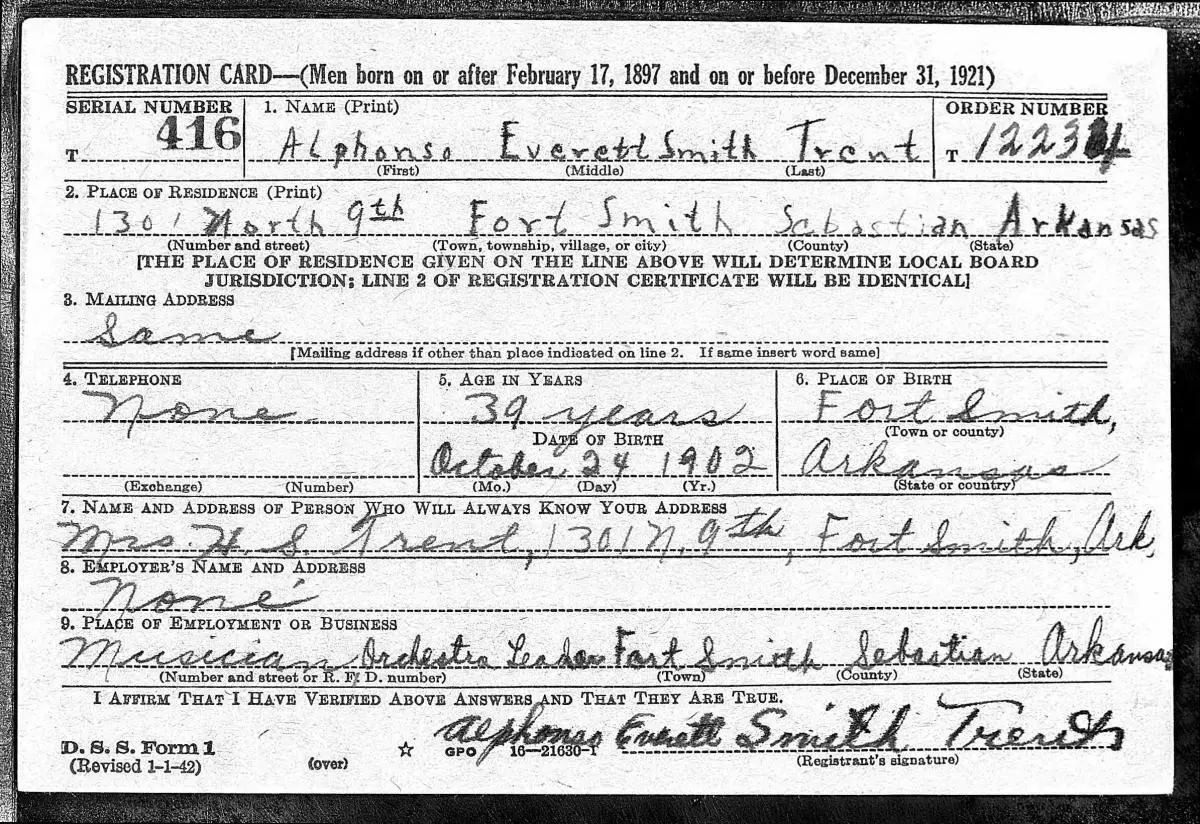 REGISTRATION CARD—(Men born on or after February 17, 1897 and on or before December 31, 1921)
SERIAL NUMBER 1. NAME (Print) ORDER NUMBER
T 416 Alphonso Everett Smith Trent T 12234
(First) (Middle) (Last)
2. PLACE OF RESIDENCE (Print)
1301 North 9th Fort Smith Sebastian Arkansas
(Number and street) (Town, township, village, or city) (County) (State)
[THE PLACE OF RESIDENCE GIVEN ON THE LINE ABOVE WILL DETERMINE LOCAL BOARD
JURISDICTION; LINE 2 OF REGISTRATION CERTIFICATE WILL BE IDENTICAL]
3. MAILING ADDRESS
Same
[Mailing address if other than place indicated on line 2. If same insert word same]
4. TELEPHONE 5. AGE IN YEARS 6. PLACE OF BIRTH
None 39 years Fort Smith,
DATE OF BIRTH (Town or county)
October 24 1902 Arkansas
(Exchange) (Number) (Mo.) (Day) (Yr.) (State or country)
7. NAME AND ADDRESS OF PERSON WHO WILL ALWAYS KNOW YOUR ADDRESS
Mrs. H. S. Trent, 1301 N. 9th, Fort Smith, Ark.
8. EMPLOYER'S NAME AND ADDRESS
None
9. PLACE OF EMPLOYMENT OR BUSINESS
Musician Orchestra Leader Fort Smith Sebastian Arkansas
(Number and street or R. F. D. number) (Town) (County) (State)
I AFFIRM THAT I HAVE VERIFIED ABOVE ANSWERS AND THAT THEY ARE TRUE.
Alphonso Everett Smith Trent
D. S. S. Form 1 GPO 16—21630-1
(Revised 1-1-42) (over) (Registrant's signature)